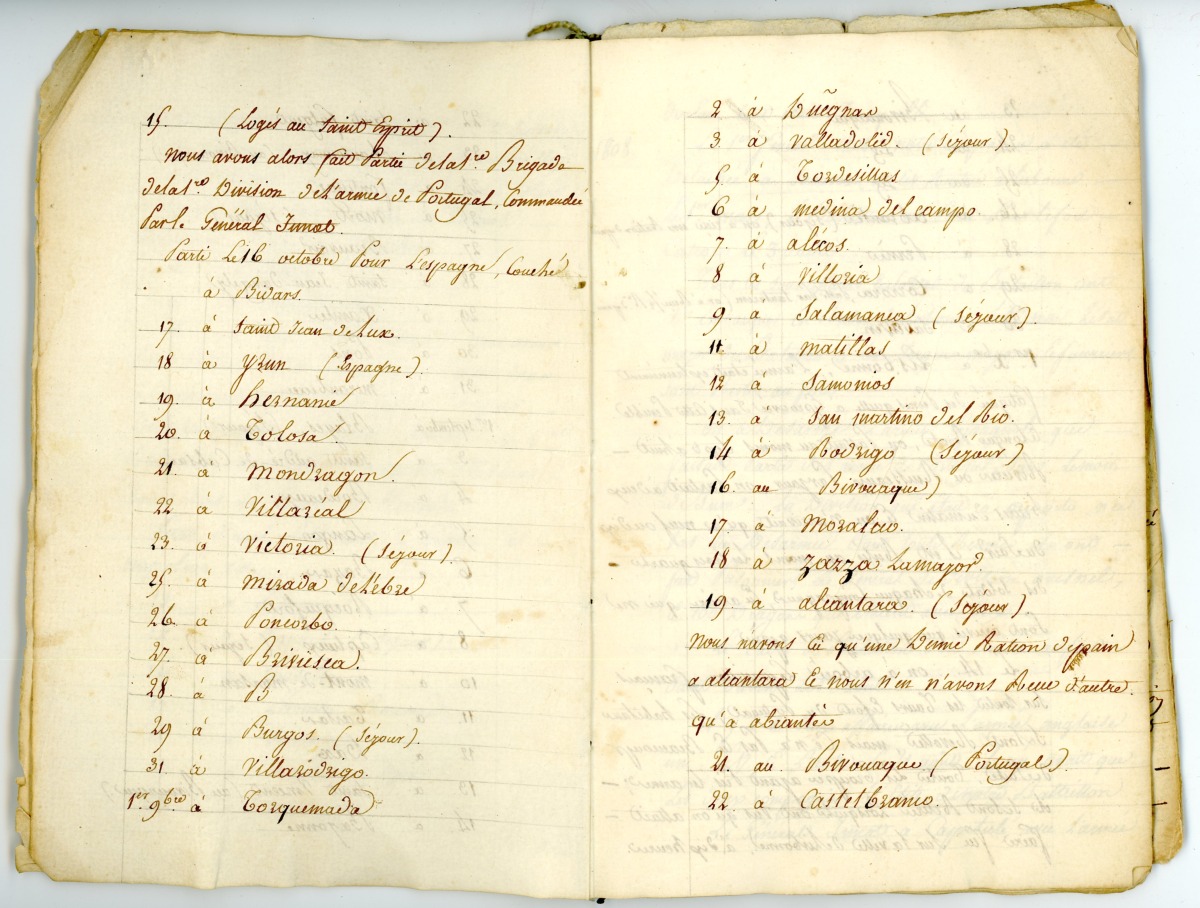 15. (Logés au Saint Esprit).
nous avons alors fait Partie de la 1.re Brigade
de la 1.re Division de l'armée de Portugal, Commandée
Par le Général Junot.
Parti Le 16 octobre Pour L'espagne, Couché
à Bidars.
17. à Saint Jean de Lux.
18 à Yrun (Espagne).
19. à hernanie
20. à Tolosa.
21. à Mondragon
22 à Villaréal
23. à Victoria. (Séjour).
25. à mirada de L'èbre
26. à Poncorbo.
27. à Briviesca.
28. à B
29 à Burgos. (Séjour).
31. à Villarodrigo.
1er 9bre à Torquemada
2 à Duẽgnas
3. à Valladolid. (Séjour).
5. à Tordesillas
6 à medina del campo.
7. à alécos.
8 à Villoria
9. à Salamanca (Séjour).
11. à matillas
12 à Samonios
13. à San martino del Rio.
14 à Rodrigo (Séjour)
16. au Bivouaque)
17. à Moralao.
18 à zarza Lamajor.
19. à alcantara. (Séjour).
nous navons Eu qu'une Demie Ration de pain
a alcantara E nous n'en n'avons Reçue d'autre
qu'a abrantés
21. au Bivouaque (Portugal).
22. à Castelbranco.